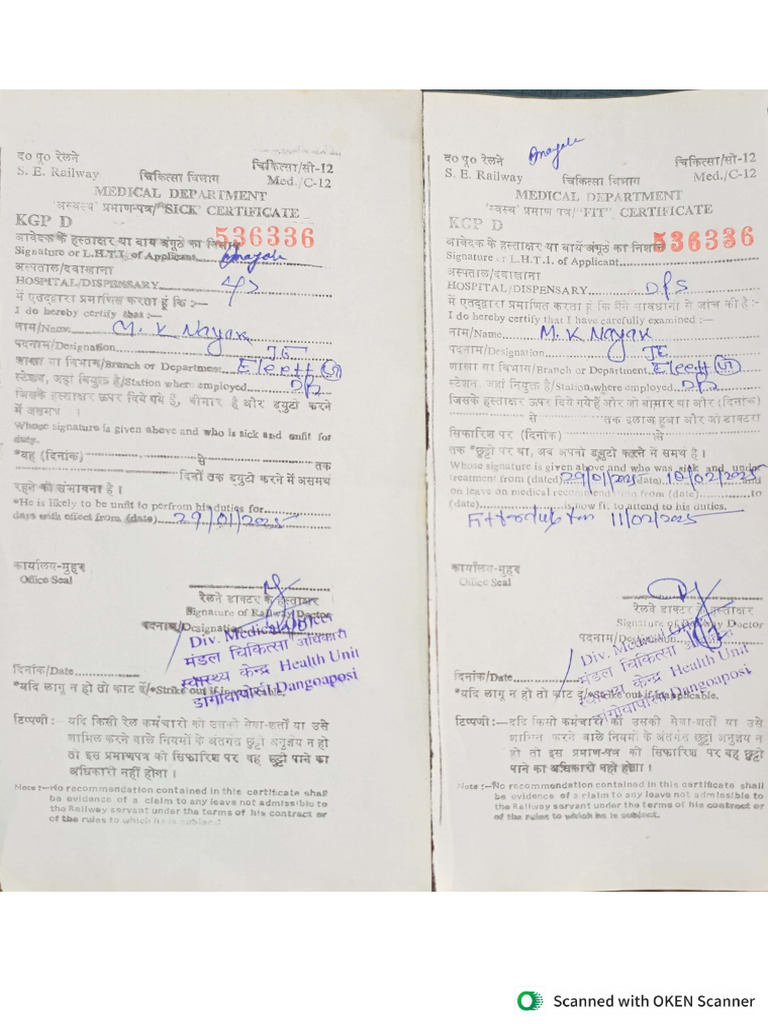 द० पू० रेलवे
चिकित्सा/सी-12
S. E. Railway
चिकित्सा विभाग
Med./C-12
MEDICAL DEPARTMENT
'अस्वस्थ' प्रमाण-पत्र/"SICK' CERTIFICATE
KGP D
536336
आवेदक के हस्ताक्षर या बायें अंगूठे का निशान
Signature or L.H.T.I. of Applicant
अस्पताल/दवाखाना
HOSPITAL/DISPENSARY
में एतद्द्वारा प्रमाणित करता हूं कि :—
I do hereby certify that :—
नाम/Name M. K Nayak
पदनाम/Designation JE
शाखा या विभाग/Branch or Department Elect
स्टेशन, जहां नियुक्त है/Station where employed
जिसके हस्ताक्षर ऊपर दिये गये हैं, बीमार है और ड्युटी करने
में असमर्थ ।
Whose signature is given above and who is sick and unfit for
duty.
*वह (दिनांक) से तक
दिनों तक ड्युटी करने में असमर्थ
रहने की संभावना है ।
*He is likely to be unfit to perfrom his duties for
days with effect from (date) 29/01/2025
कार्यालय-मुहर
Office Seal
रेलवे डाक्टर के हस्ताक्षर
Signature of Railway Doctor
पदनाम/Designation
Div. Medical Officer
मंडल चिकित्सा अधिकारी
स्वास्थ्य केन्द्र Health Unit
डांगोवापोसी Dangoaposi
दिनांक/Date
*यदि लागू न हो तो काट दें/*Strike out if inapplicable.
टिप्पणी :— यदि किसी रेल कर्मचारी को उसकी सेवा-शर्तों या उसे
शामिल करने वाले नियमों के अंतर्गत छुट्टी अनुज्ञेय न हो
तो इस प्रमाणपत्र की सिफारिश पर वह छुट्टी पाने का
अधिकारी नहीं होगा ।
Note :—No recommendation contained in this certificate shall
be evidence of a claim to any leave not admissible to
the Railway servant under the terms of his contract or
of the rules to which he is subject.
द० पू० रेलवे
चिकित्सा/सी-12
S. E. Railway
चिकित्सा विभाग
Med./C-12
MEDICAL DEPARTMENT
'स्वस्थ' प्रमाण पत्र/"FIT' CERTIFICATE
KGP D
536336
आवेदक के हस्ताक्षर या बायें अंगूठे का निशान
Signature or L.H.T.I. of Applicant
अस्पताल/दवाखाना
HOSPITAL/DISPENSARY
में एतद्द्वारा प्रमाणित करता हूं कि मैंने सावधानी से जांच की है :—
I do hereby certify that I have carefully examined :—
नाम/Name M. K Nayak
पदनाम/Designation JE
शाखा या विभाग/Branch or Department Elect
स्टेशन, जहां नियुक्त है/Station where employed
जिसके हस्ताक्षर ऊपर दिये गये हैं और जो बीमार था और (दिनांक)
से तक इलाज हुआ और जो डाक्टरी
सिफारिश पर (दिनांक) से
तक *छुट्टी पर था, अब अपनी ड्युटी करने में समर्थ है ।
Whose signature is given above and who was sick and under
treatment from (dated) 29/01/2025 (date) 10/02/2025 and
on leave on medical recommendation from (date) to
(date) is now fit to attend to his duties.
11/02/2025
कार्यालय-मुहर
Office Seal
रेलवे डाक्टर के हस्ताक्षर
Signature of Railway Doctor
पदनाम/Designation
Div. Medical
मंडल चिकित्सा अधिकारी
स्वास्थ्य केन्द्र Health Unit
डांगोवापोसी Dangoaposi
दिनांक/Date
*यदि लागू न हो तो काट दें/*Strike out if inapplicable.
टिप्पणी :— यदि किसी कर्मचारी को उसकी सेवा-शर्तों या उसे
शामिल करने वाले नियमों के अंतर्गत छुट्टी अनुज्ञेय न
हो तो इस प्रमाण-पत्र की सिफारिश पर वह छुट्टी
पाने का अधिकारी नहीं होगा ।
Note :—No recommendation contained in this certificate shall
be evidence of a claim to any leave not admissible to
the Railway servant under the terms of his contract or
of the rules to which he is subject.
Scanned with OKEN Scanner